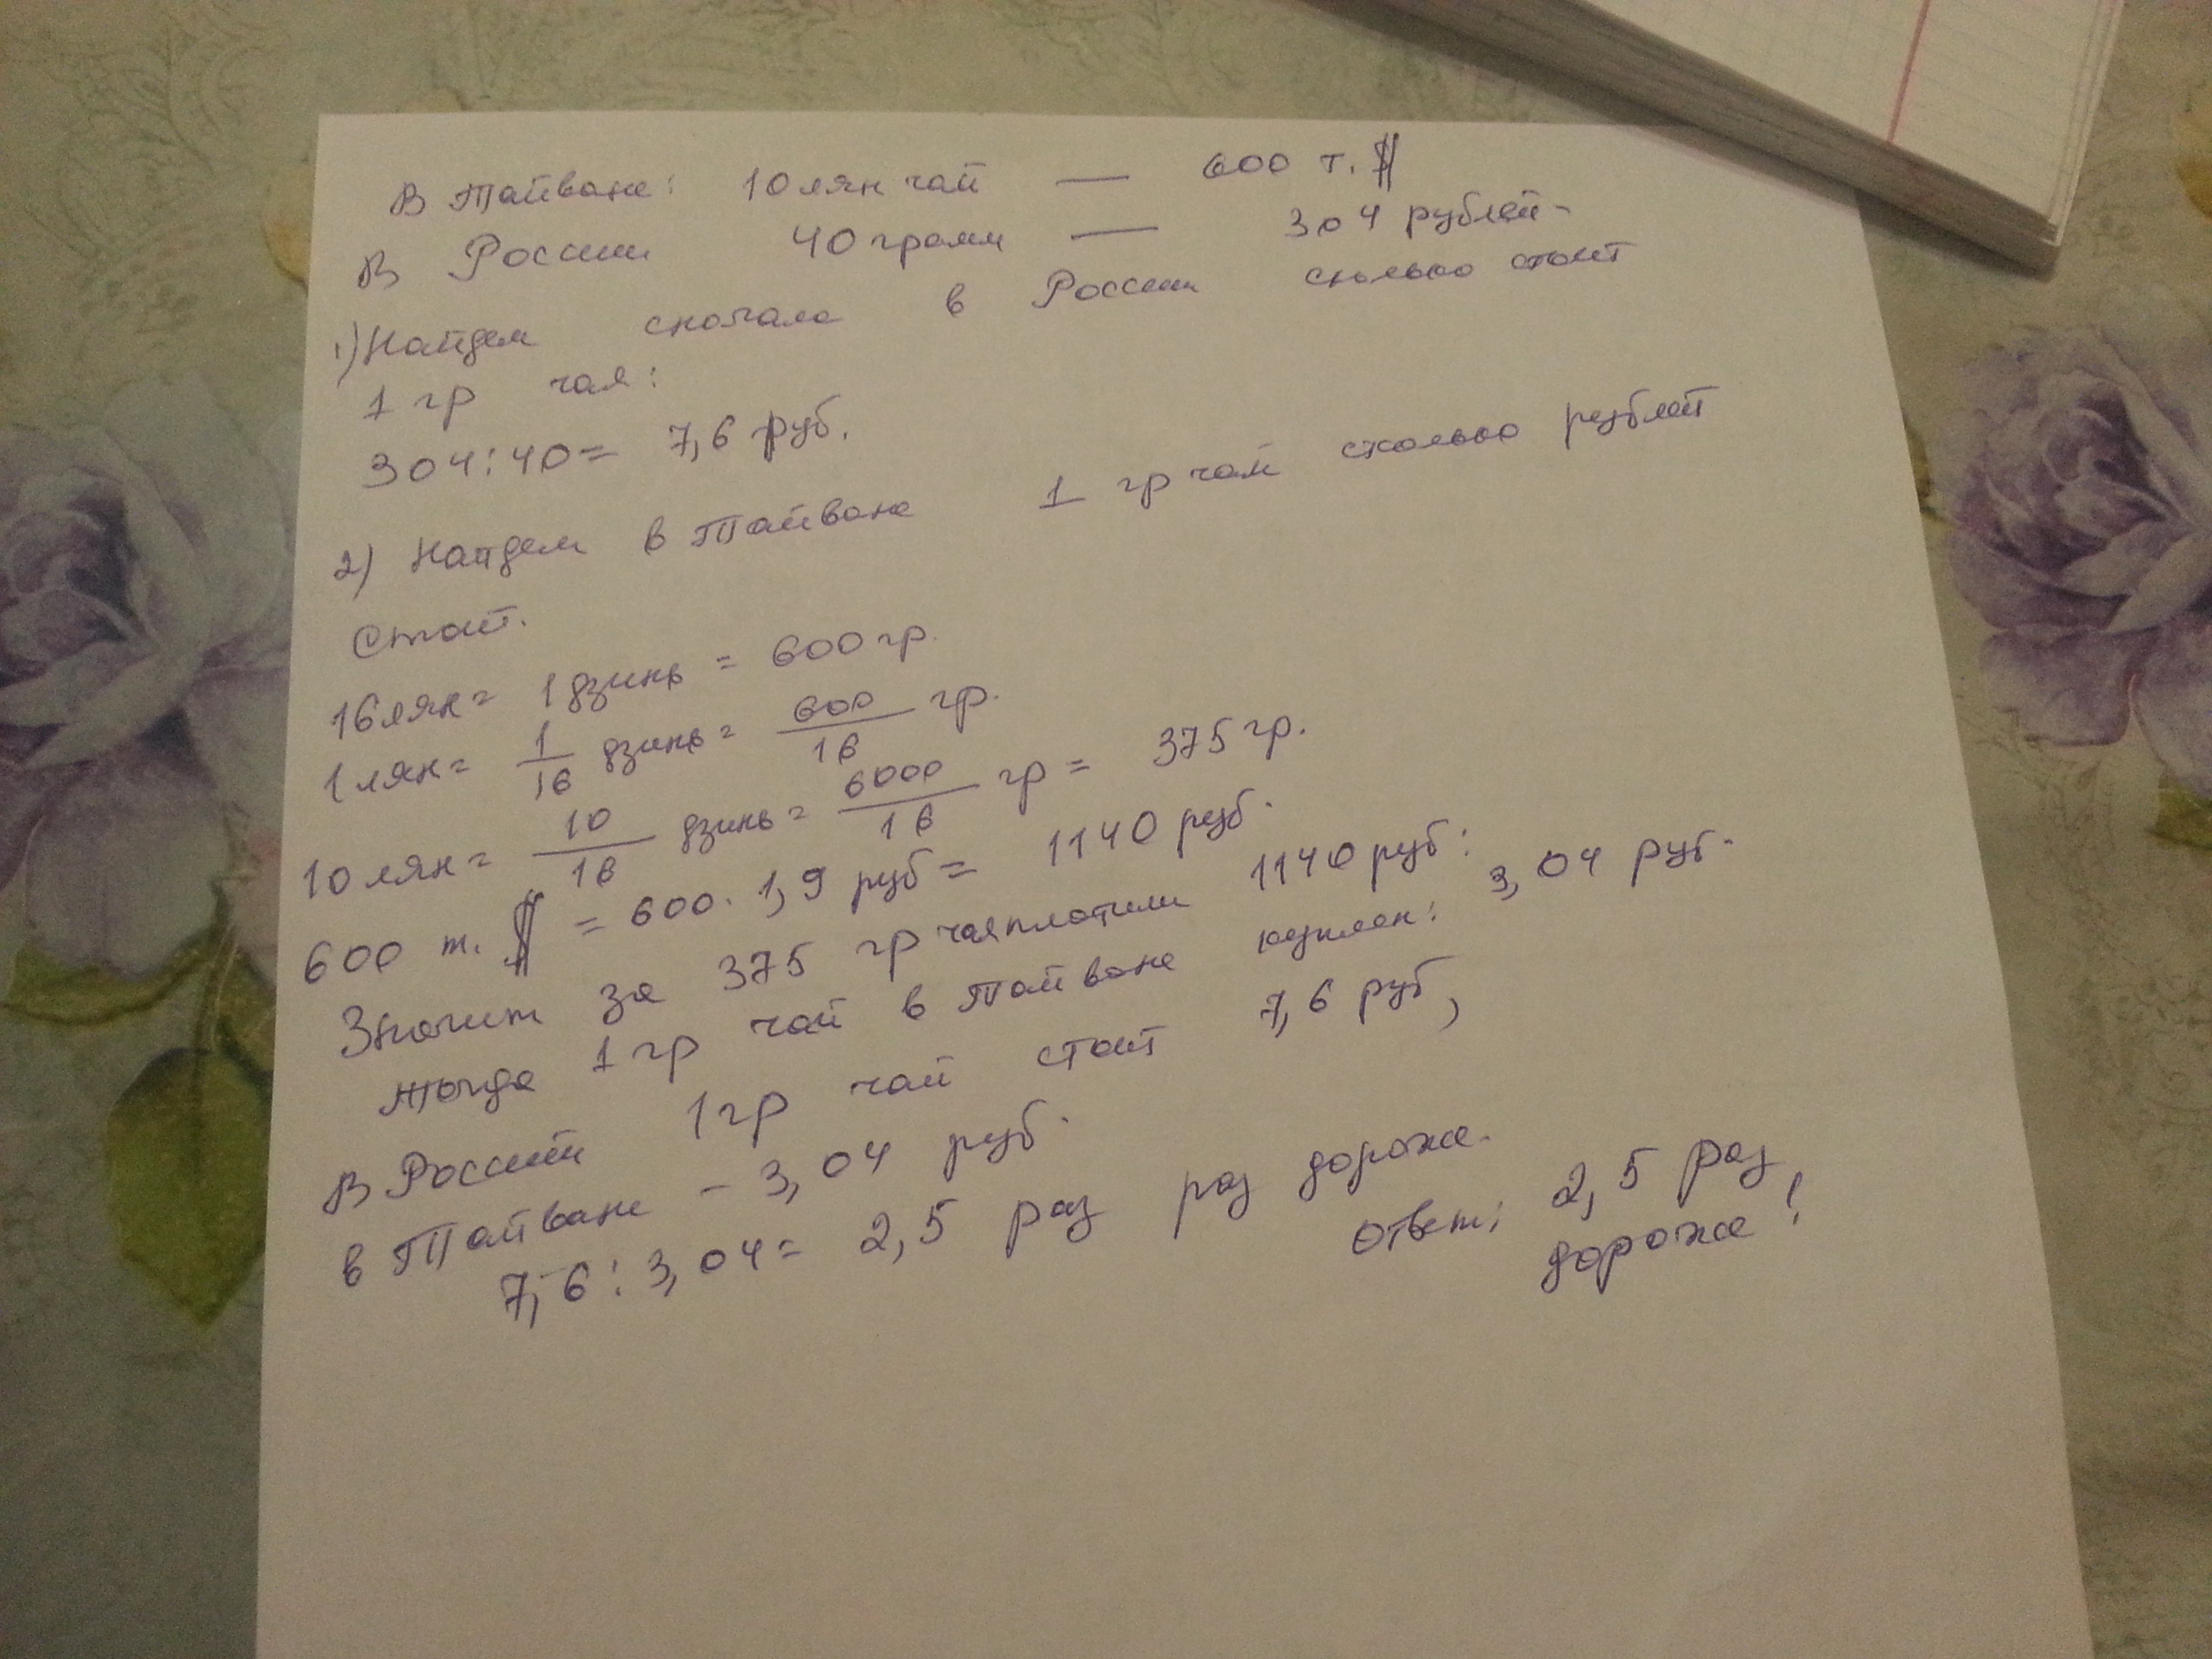 В Тайване: 10 лян чай — 600 т. $
В России 40 грамм — 304 рублей-
1) Найдем сначала в России сколько стоит
1 гр чая:
304:40= 7,6 руб.
2) Найдем в Тайване 1 гр чай сколько рублей
стоит.
16 лян= 1 дзинь = 600 гр.
1 лян= 1/16 дзинь= 600/16 гр.
10 лян= 10/16 дзинь= 6000/16 гр= 375 гр.
600 т. $ = 600. 1,9 руб= 1140 руб.
Значит за 375 гр чая платили 1140 руб:
тогда 1 гр чай в Тайване куплен: 3,04 руб.
В России 1 гр чай стоит 7,6 руб,
в Тайване - 3,04 руб.
7,6:3,04= 2,5 раз раз дороже.
Ответ: 2,5 раз
дороже!